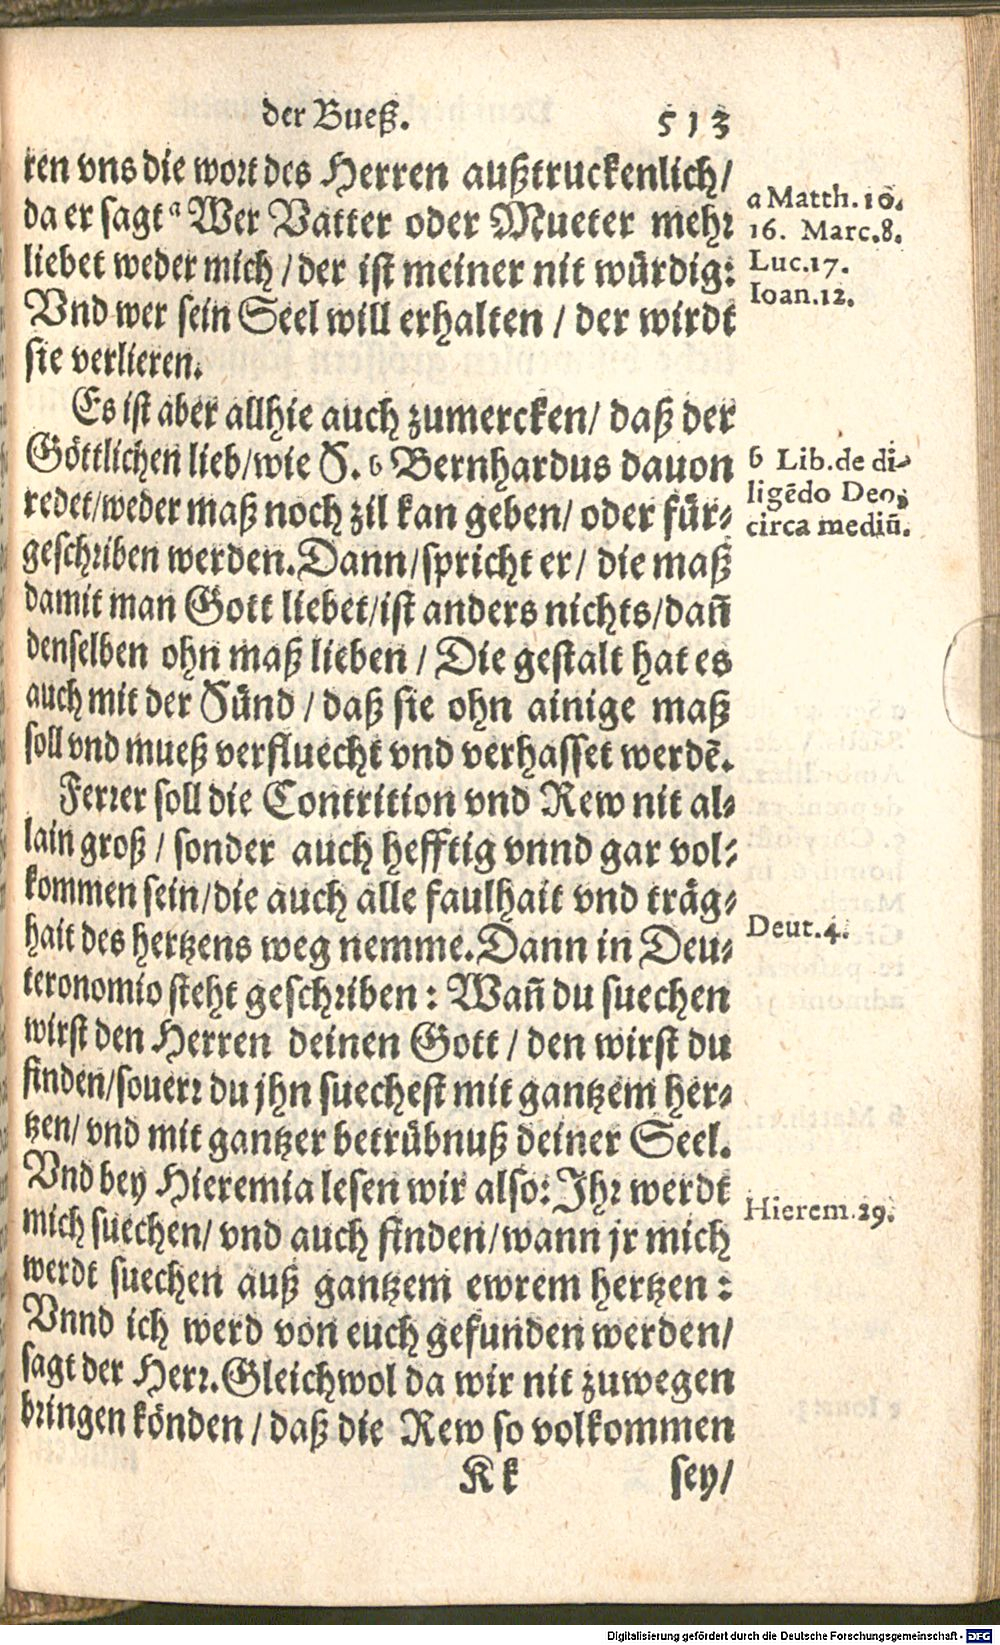 der Bueß. 513
ren vns die wort des Herren außtruckenlich/
da er sagt a Wer Vatter oder Mueter mehr
liebet weder mich / der ist meiner nit würdig:
Vnd wer sein Seel will erhalten / der wirdt
sie verlieren.
a Matth. 10.
16. Marc.8.
Luc.17.
Ioan.12.
Es ist aber allhie auch zumercken/ daß der
Göttlichen lieb/wie S. b Bernhardus dauon
redet/weder maß noch zil kan geben/ oder für-
geschriben werden. Dann/spricht er/ die maß
damit man Gott liebet/ist anders nichts/dañ
denselben ohn maß lieben / Die gestalt hat es
auch mit der Sünd / daß sie ohn ainige maß
soll vnd mueß verfluecht vnd verhasset werdẽ.
b Lib.de di-
ligẽdo Deo,
circa mediũ.
Ferrer soll die Contrition vnd Rew nit al-
lain groß / sonder auch hefftig vnnd gar vol-
kommen sein/die auch alle faulhait vnd träg-
hait des hertzens weg nemme. Dann in Deu-
teronomio steht geschriben: Wañ du suechen
wirst den Herren deinen Gott / den wirst du
finden/souerr du jhn suechest mit gantzem her-
tzen/ vnd mit gantzer betrübnuß deiner Seel.
Vnd bey Hieremia lesen wir also: Ihr werdt
mich suechen/ vnd auch finden/wann jr mich
werdt suechen auß gantzem ewrem hertzen:
Vnnd ich werd von euch gefunden werden/
sagt der Herr. Gleichwol da wir nit zuwegen
bringen könden / daß die Rew so volkommen
Deut.4.
Hierem.29.
Kk sey/
Digitalisierung gefördert durch die Deutsche Forschungsgemeinschaft - DFG